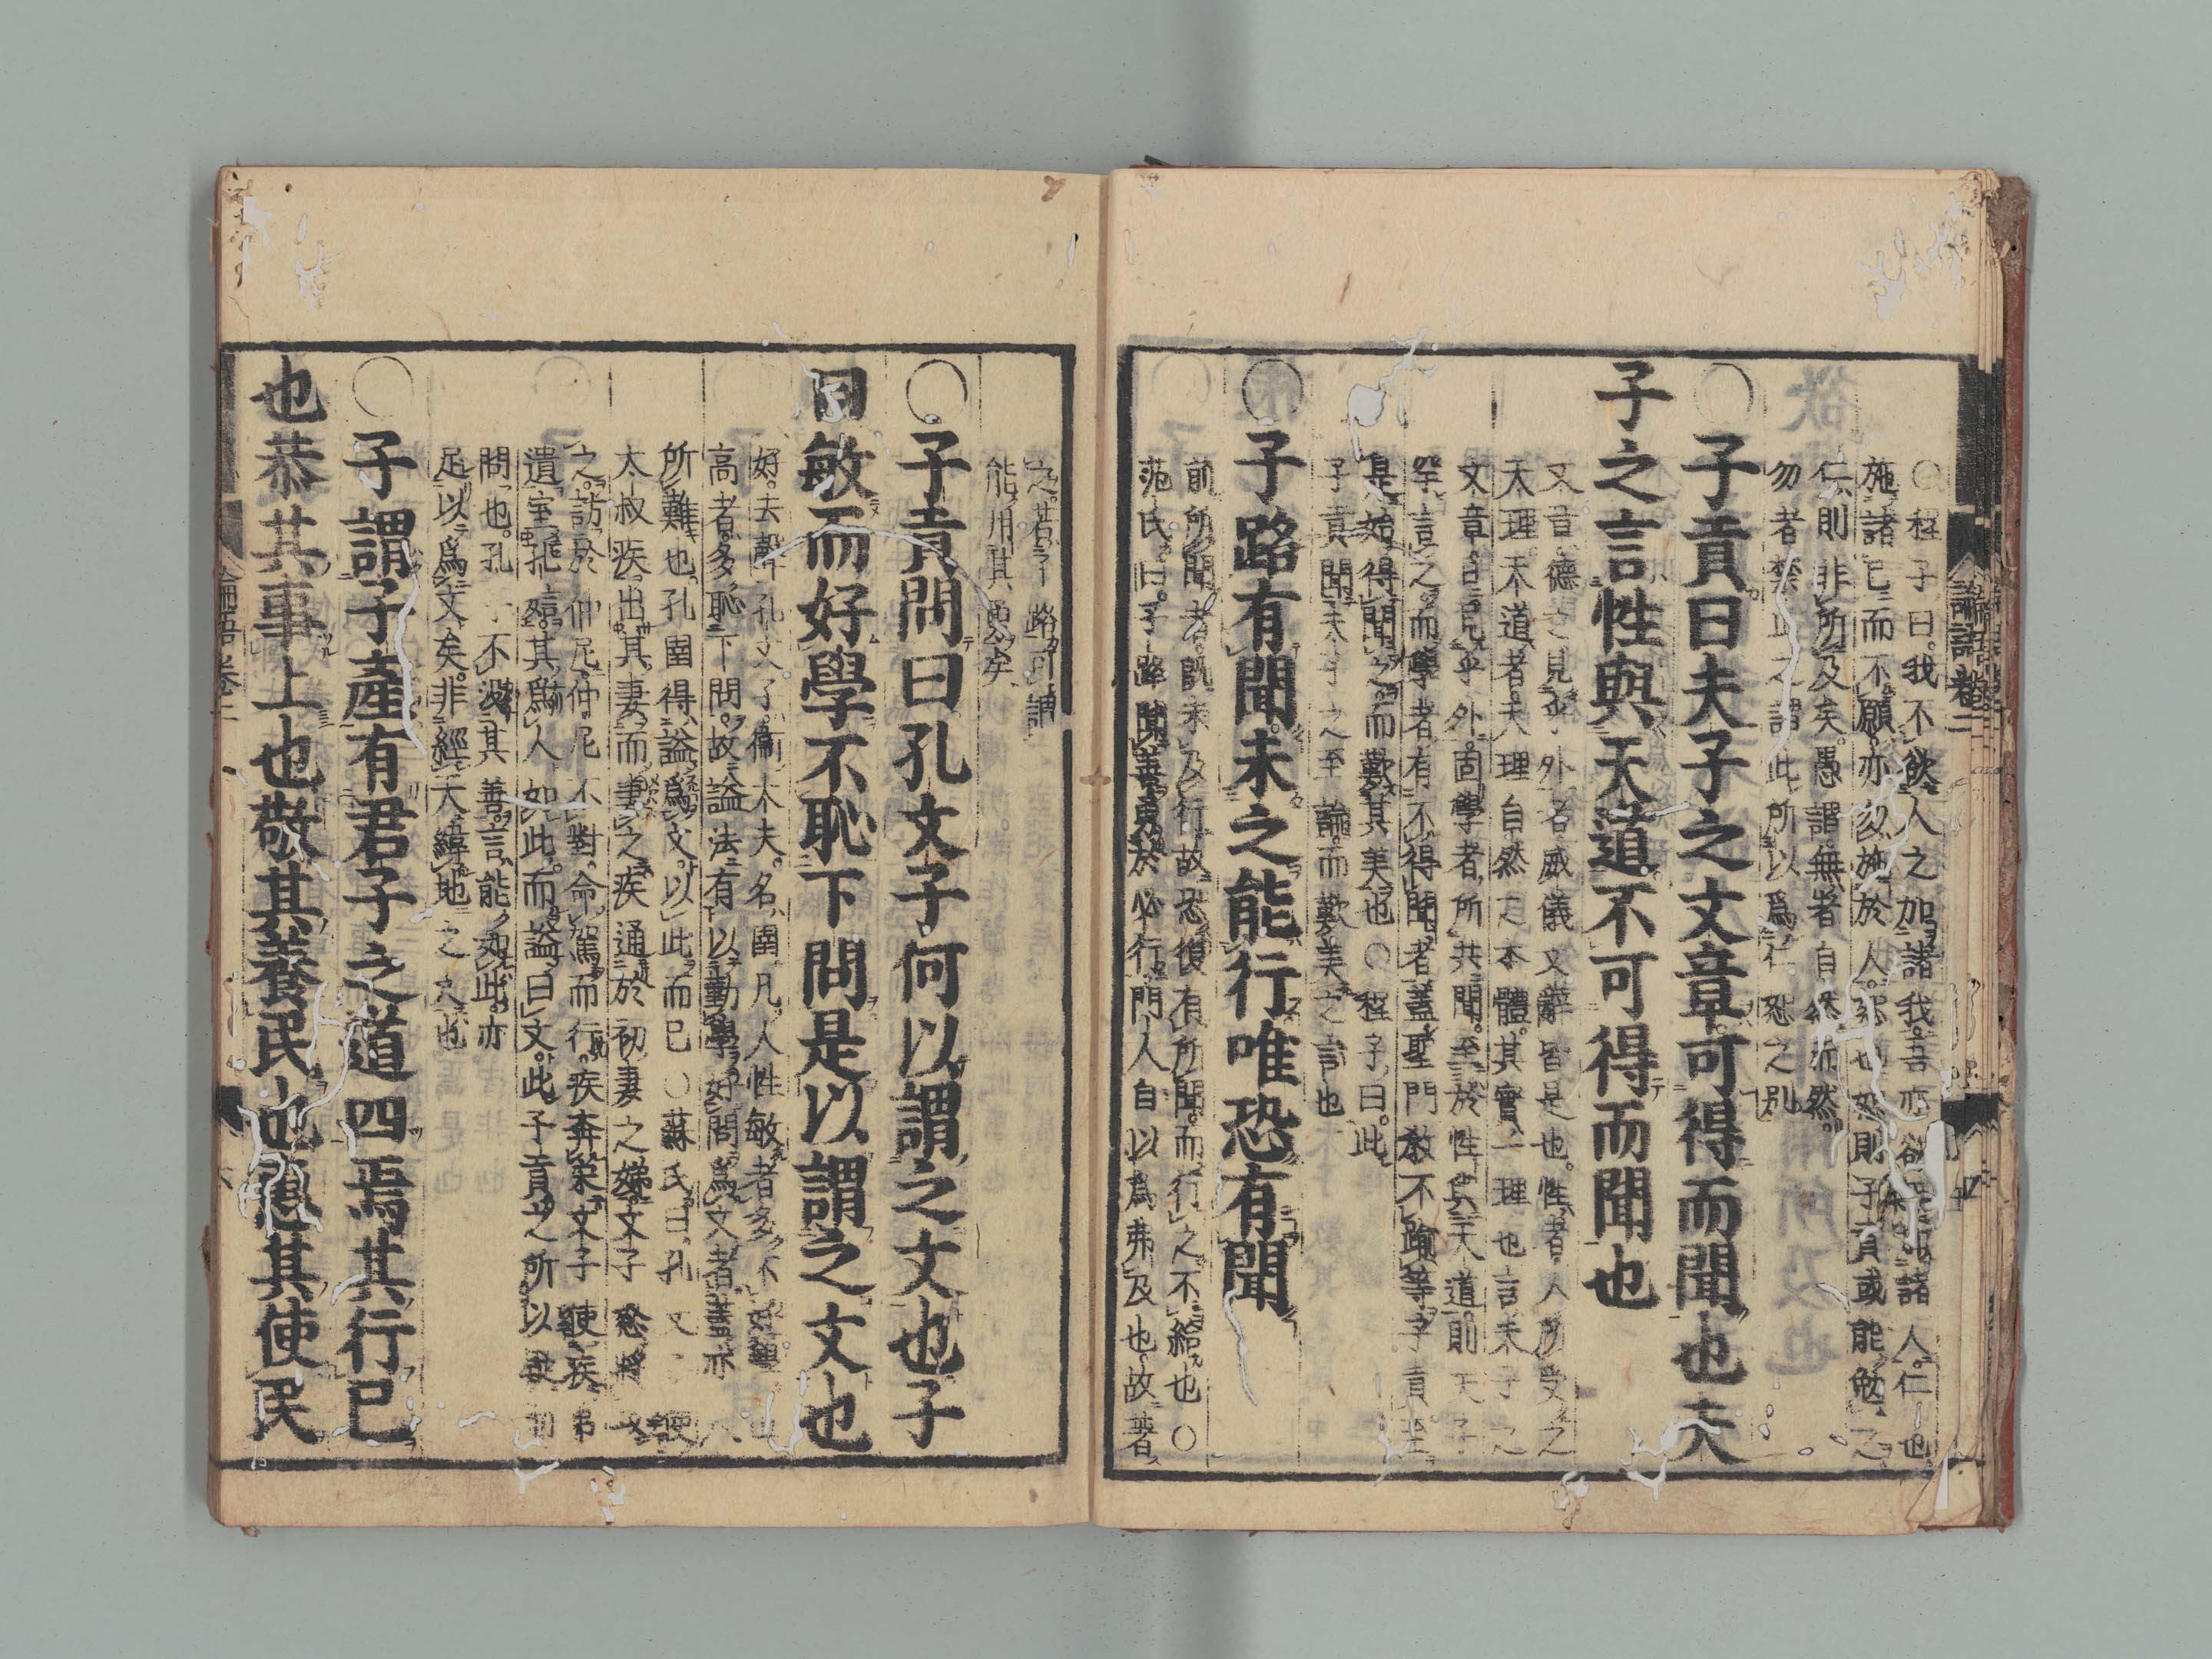 ○程子曰我不欲人之加諸我吾亦欲無加諸人仁也
施諸己而不願亦勿施於人恕也恕則子貢或能勉之
仁則非所及矣愚謂無者自然而然
勿者禁止之謂此所以爲仁恕之別
○子貢曰夫子之文章可得而聞也夫
子之言性與天道不可得而聞也
文章德之見乎外者威儀文辭皆是也性者人所受之
天理天道者天理自然之本體其實一理也言夫子之
文章日見乎外固學者所共聞至於性與天道則夫子
罕言之而學者有不得聞者蓋聖門敎不躐等子貢至
是始得聞之而歎其美也○程子曰此
子貢聞夫子之至論而歎美之言也
○子路有聞未之能行唯恐有聞
前所聞者既未及行故恐復有所聞而行之不給也○
范氏曰子路聞善勇於必行門人自以爲弗及也故著
之若子路可謂
能用其勇矣
○子貢問曰孔文子何以謂之文也子
曰敏而好學不恥下問是以謂之文也
好去聲孔文子衞大夫名圉凡人性敏者多不好學位
高者多恥下問故謚法有以勤學好問爲文者蓋亦人
所難也孔圉得謚爲文以此而已○蘇氏曰孔文子使
太叔疾出其妻而妻之疾通於初妻之娣文子怒將攻
之訪於仲尼仲尼不對命駕而行疾奔宋文子使疾弟
遺室孔姞其爲人如此而謚曰文此子貢之所以疑而
問也孔子不沒其善言能如此亦
足以爲文矣非經天緯地之文也
○子謂子產有君子之道四焉其行己
也恭其事上也敬其養民也惠其使民
論語卷二
論語卷二